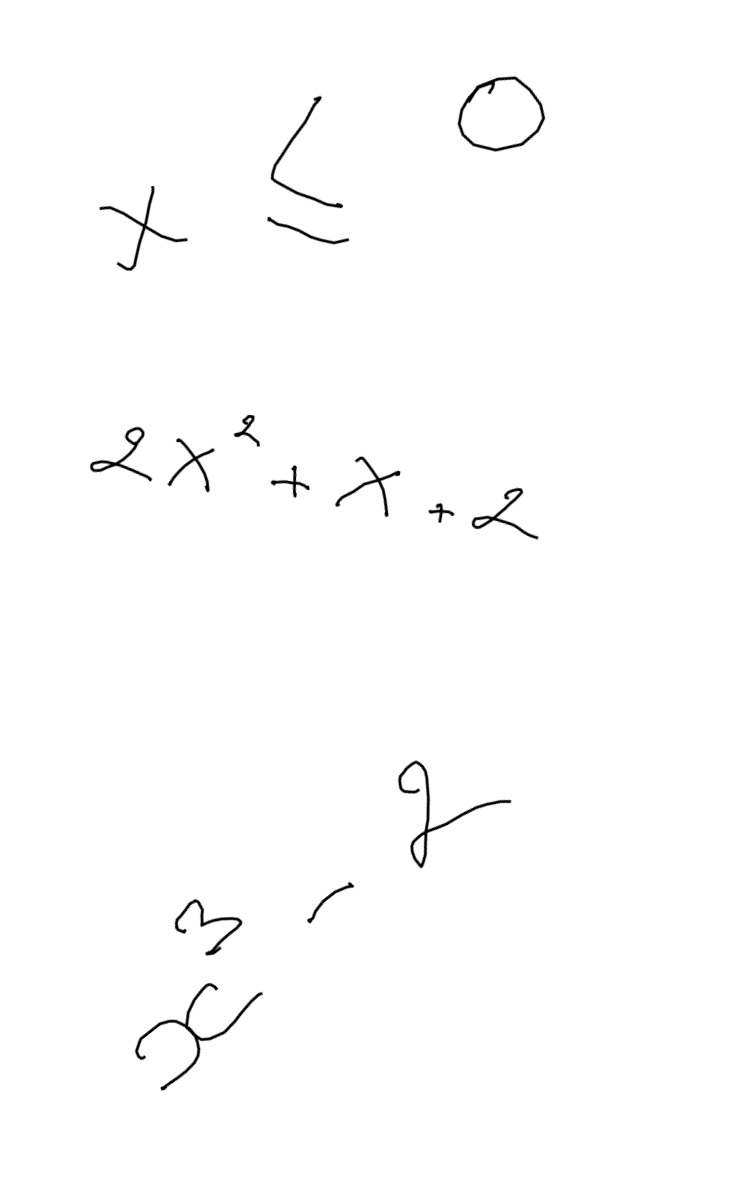 x ≤ 0
2x² + x + 2
x³ - 2